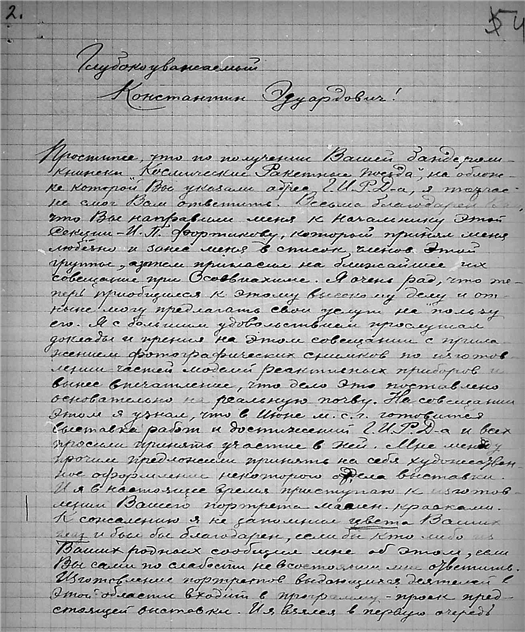 2.
54
Глубокоуважаемый
Константин Эдуардович!
Простите, что по получении Вашей бандеролью
книжки "Космические Ракетные Поезда", на облож-
ке которой Вы указали адрес Г.И.Р.Д-а, я тотчас
не смог Вам ответить. Весьма благодарен Вам,
что Вы направили меня к начальнику этой
секции - И.П. Фортикову, который принял меня
любезно и занес меня в список членов этой
группы, а затем пригласил на ближайшее их
совещание при Осоавиахиме. Я очень рад, что те-
перь приобщился к этому высокому делу и от-
ныне могу предлагать свои услуги на пользу
его. Я с большим удовольствием прослушал
доклады и прения на этом совещании с прило-
жением фотографических снимков по изготов-
лении частей моделей реактивных приборов и
вынес впечатление, что дело это поставлено
основательно на реальную почву. На совещании
этом я узнал, что в Июне м. с.г. готовится
выставка работ и достижений Г.И.Р.Д-а и всех
просили принять участие в ней. Мне между
прочим предложили принять на себя художествен-
ное оформление некоторого отдела выставки.
И я в настоящее время приступаю к изготов-
лении Вашего портрета маслен. красками.
К сожалению я не запомнил цвета Ваших
глаз и был бы благодарен, если бы кто либо из
Ваших родных сообщил мне об этом, если
Вы сами по слабости не в состоянии мне ответить.
Изготовление портретов выдающихся деятелей в
этой области входит в программу - проэк пред-
стоящей выставки. И я взялся в первую очередь